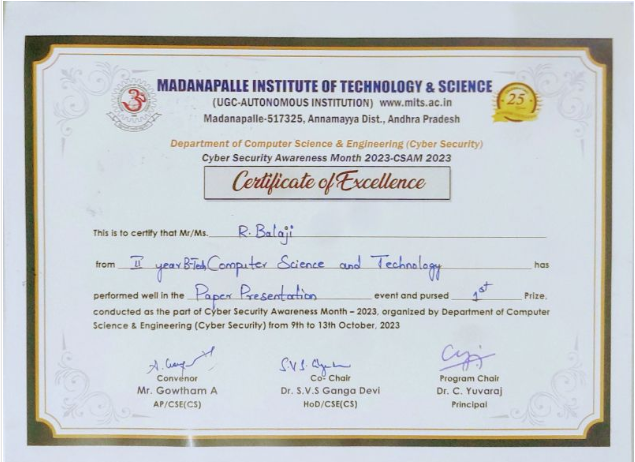 MADANAPALLE INSTITUTE OF TECHNOLOGY & SCIENCE
(UGC-AUTONOMOUS INSTITUTION) www.mits.ac.in
Madanapalle-517325, Annamayya Dist., Andhra Pradesh
25
Department of Computer Science & Engineering (Cyber Security)
Cyber Security Awareness Month 2023-CSAM 2023
Certificate of Excellence
This is to certify that Mr/Ms. R. Balaji
from II year B-Tech Computer Science and Technology has
performed well in the Paper Presentation event and pursed 1st Prize.
conducted as the part of Cyber Security Awareness Month – 2023, organized by Department of Computer
Science & Engineering (Cyber Security) from 9th to 13th October, 2023
Convenor Co- Chair Program Chair
Mr. Gowtham A Dr. S.V.S Ganga Devi Dr. C. Yuvaraj
AP/CSE(CS) HoD/CSE(CS) Principal